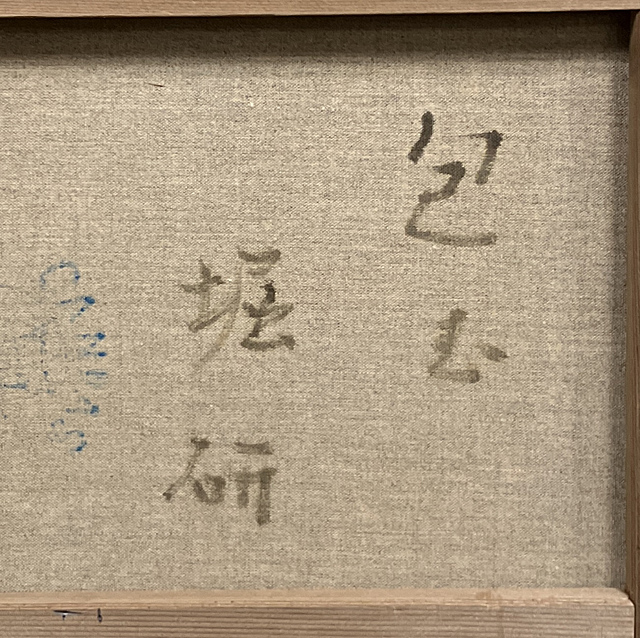 包む
堀研